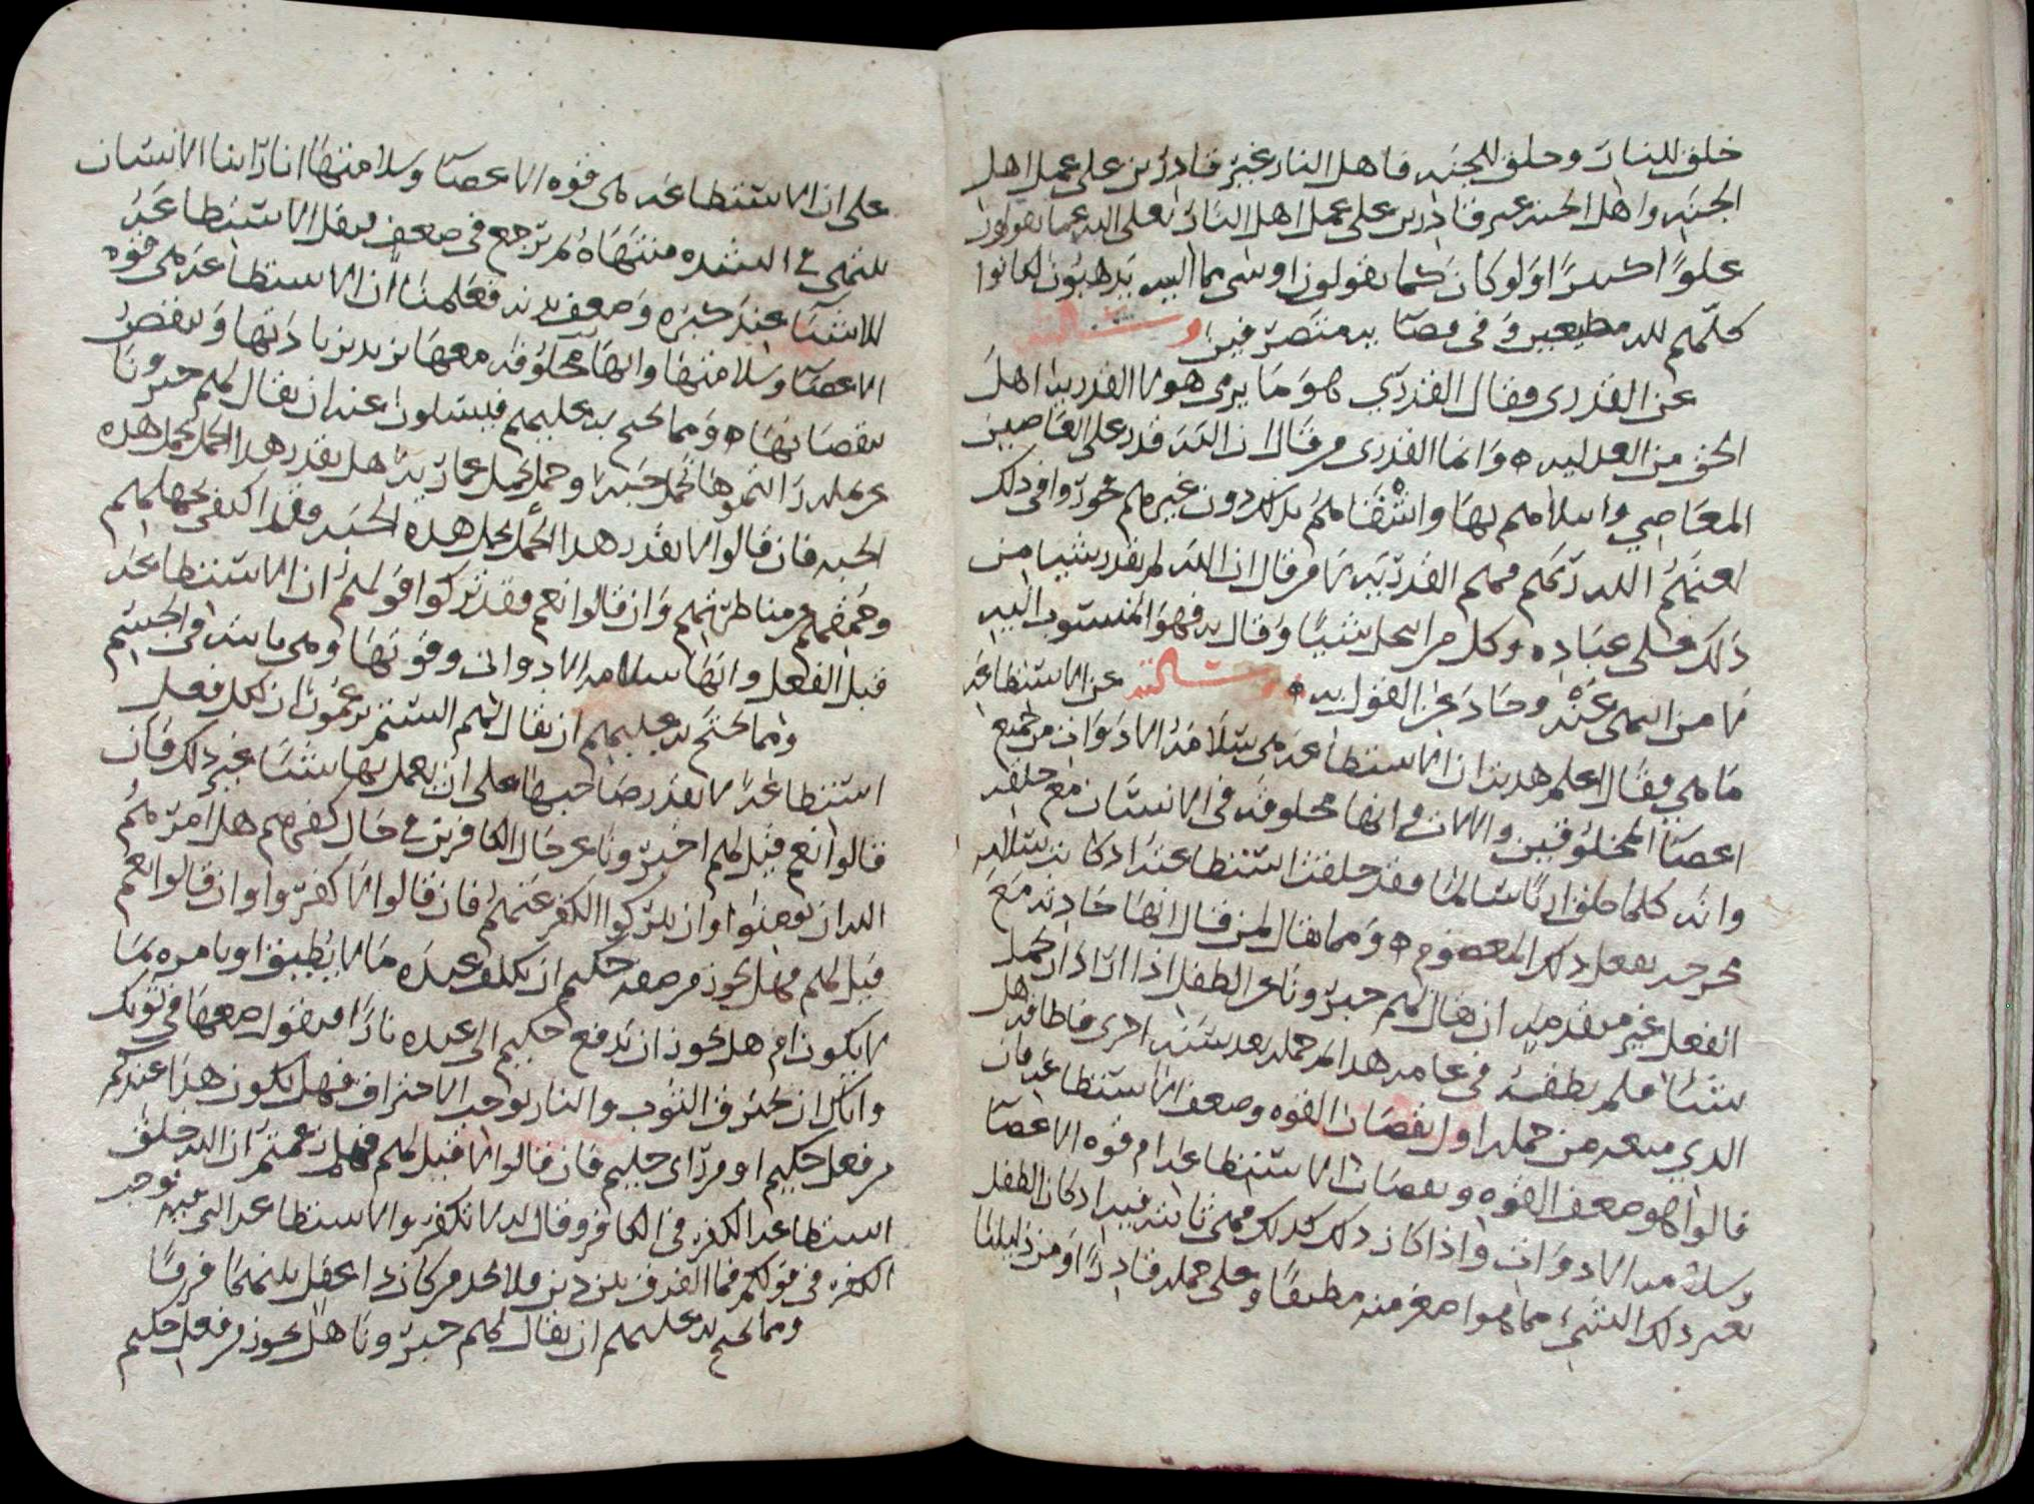 خلق للنار وخلق للجنه فاهل النار غير قادرين على عمل اهل
الجنه واهل الجنه غير قادرين على عمل اهل النار تعلى الله عما يقولون
علوًا كبيرًا ولو كان كما يقولون او شى مما اليه يذهبون لكانوا
كلهم لله مطيعين وفى قضايه متصرفين وسالته
عن القدرى فقال القدري هو ما يرمى هولا القدريه اهل
الحق من العدليه وانما القدرى من قال ان الله قدر على العاصين
المعاصي واسلامهم بها واشقاهم بذلك دون غيرهم تجوروا فى ذلك
لعنهم الله ربهم فهم القدريه لا من قال ان الله لم يقدر شيا من
ذلك على عباده وكل من انتحل شيئا وقال به فهو المنسوب اليه
لا من انتهى عنه وحاد عن القول به وسالته عن الاستطاعه
ما هي فقال اعلم هديت ان الاستطاعه هى سلامه الادوات من جميع
اعضا المخلوقين والالات وانها مخلوقه فى الانسان مع خلقه
وانه كلما خلق الله سالما فقد خلقت استطاعته اذ كانت سلامه
يفعل ذلك المعصوم ومما يقال لمن قال انها حادثه مع
الفعل غير متقدميه ان يقال لهم خبرونا عن الطفل اذا اراد ان يحمل
شيئا فلم يطقه فى عامه هذا ثم حمله بعد سنه اخرى فاطاقه هل
الذي منعه من حمله اولا نقصان القوه وضعف الاستطاعه فان
قالوا هو ضعف القوه ونقصان الاستطاعه ام قوه الاعضا
وسلامه الادوات واذا كان ذلك كذلك فهى ثابته فيه اذ كان الطفل
بغير ذلك الشيء مما هوا صغر منه مطيقًا وعلى حمله قادرًا ومن دليلنا
على ان الاستطاعه هى قوه الاعضا وسلامتها انا راينا الانسان
ينتهى فى الشده منتهاه ثم يرجع فى ضعف فتقل الاستطاعه
للاشيا عند كبره وضعف بدنه فعلمنا ان الاستطاعه هى قوه
الاعضا وسلامتها وانها مخلوقه معها تزيد بزيادتها وتنقص
بنقصانها ومما يحتج به عليهم فيسلون عنه ان يقال لهم خبرونا
عن رايتموها تحمل حبه وحمل يحمل عما يريد هل يقدر هذا الحمل يحمل هذه
الحبه فان قالوا لا يقدر هذا الحمل يحمل هذه الحبه فقد اكتفى بجهلهم
وحمقهم عن مناظرتهم وان قالوا نعم فقد تركوا قولهم ان الاستطاعه
قبل الفعل وانها سلامه الادوات وقوتها وهى ثابته فى الجسم
ومما يحتج به عليهم ان يقال لهم الستم تزعمون ان لكل فعل
استطاعه لا يقدر صاحبها على ان يعمل بها شيئا غير ذلك فان
قالوا نعم قيل لهم اخبرونا عن حال الكافرين فى حال كفرهم هل امرهم
الله ان يومنوا وان يتركوا الكفر عنهم فان قالوا لا كفروا وان قالوا نعم
قيل لهم فهل يجوز من صفه حكيم ان يكلف عبده ما لا يطيق او يامره بما
لا يكون ام هل يجوز ان يدفع حكيم الى عبده نارًا فيقول ضعها فى ثوبك
واياك ان يحترق الثوب والنار توجب الاحتراق فهل يكون هذا عندكم
من فعل حكيم او من راى حليم فان قالوا لا قيل لهم فهل زعمتم ان الله خلق
استطاعه الكفر فى الكافر وقال له لا تكفر والاستطاعه التى فيه توجب
الكفر فى قولكم فما الفرق بين دين ولا يجد من كان ذا عقل بينهما فرقًا
ومما يحتج به عليهم ان يقال لهم خبرونا هل يجوز من فعل حكيم